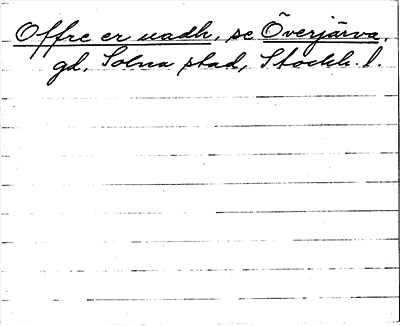 Offre er uadh, se Överjärva,
gd, Solna stad, Stockh. l.